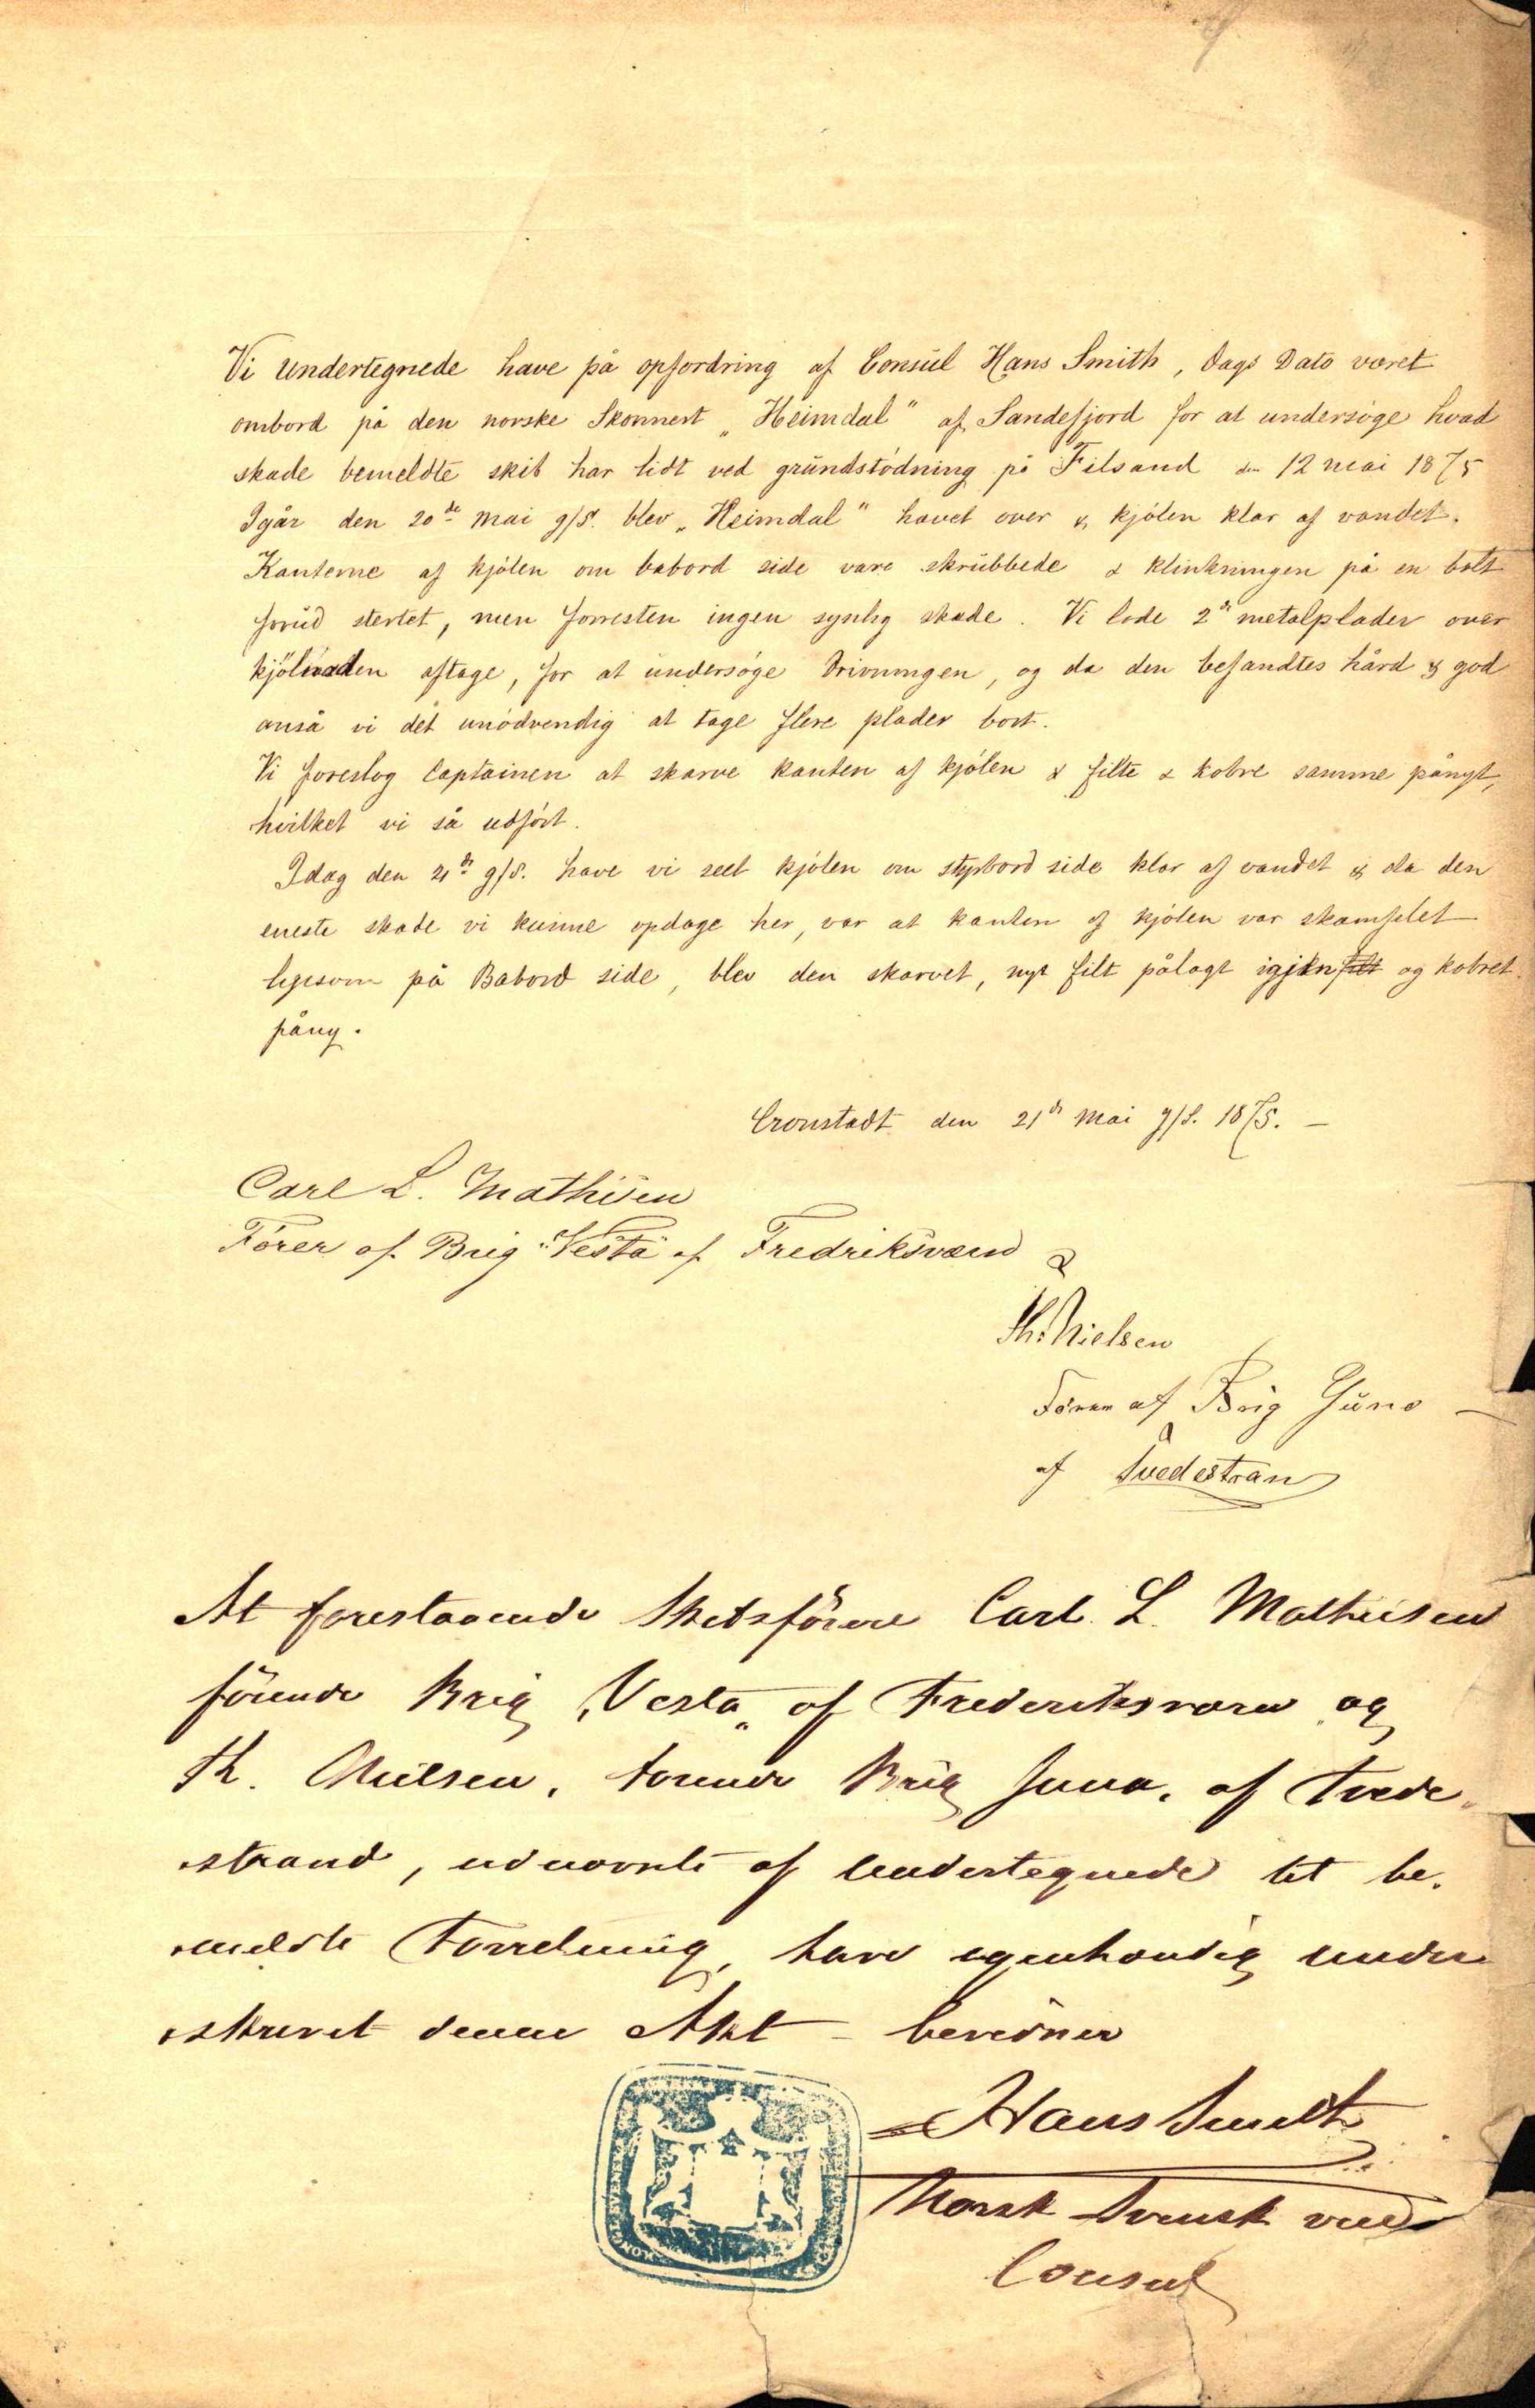 Vi undertegnede have på opfordring af Consul Hans Smith, dags Dato været
ombord på den norske Skonnert „Heimdal" af Sandefjord for at undersöge hvad
skade bemeldte skib har lidt ved grundstödning på Filsand den 12 mai 1875
Igår den 20de mai g/S. blev „Heimdal" havet over & kjölen klar af vandet.
Kanterne af kjölen om babord side vare skrubbede & klinkningen på en bolt
forud stertet, men forresten ingen synlig skade. Vi lode 2de metalplader over
kjölnaden aftage, for at undersöge Drivningen, og da den befandtes hård & god
anså vi det unödvendig at tage flere plader bort.
Vi foreslog Captainen at skarve kanten af kjölen & filte & kobre samme pånyt,
hvilket vi så udfört.
Idag den 21de g/S. have vi seet kjölen om styrbord side klar af vandet & da den
eneste skade vi kunne opdage her, var at kanten af kjölen var skamfilet
ligesom på Babord side, blev den skarvet, nyt filt pålagt igjen filt og kobret
påny.
Cronstadt den 21de Mai g/S. 1875. —
Carl L. Mathisen
Förer af Brig "Vesta" af Fredriksværn
Th. Nielsen
Förer af Brig Juno
af Tvedestrand
At forestaaende Skibsförere Carl L. Mathiesen
förende Brig „Vesta" af Frederiksværn og
Th. Nielsen, förende Brig Juno, af Tvede-
strand, udnævnte af undertegnede til be-
meldte Forretning, have egenhændig under
skrevet denne Akt – bevidner
Hans Smith
Norsk Svensk vice
Consul